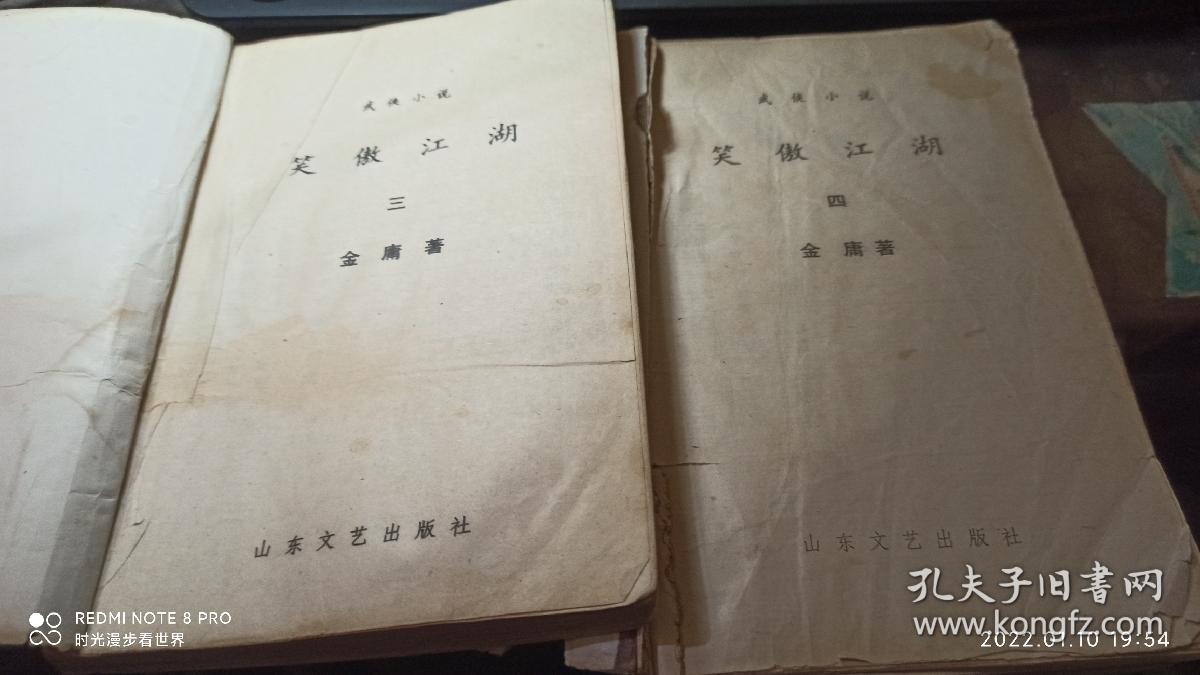 武侠小说
笑傲江湖
三
金庸著
山东文艺出版社
武侠小说
笑傲江湖
四
金庸著
山东文艺出版社
REDMI NOTE 8 PRO
时光漫步看世界
孔夫子旧书网
www.kongfz.com
2022.01.10 19:54